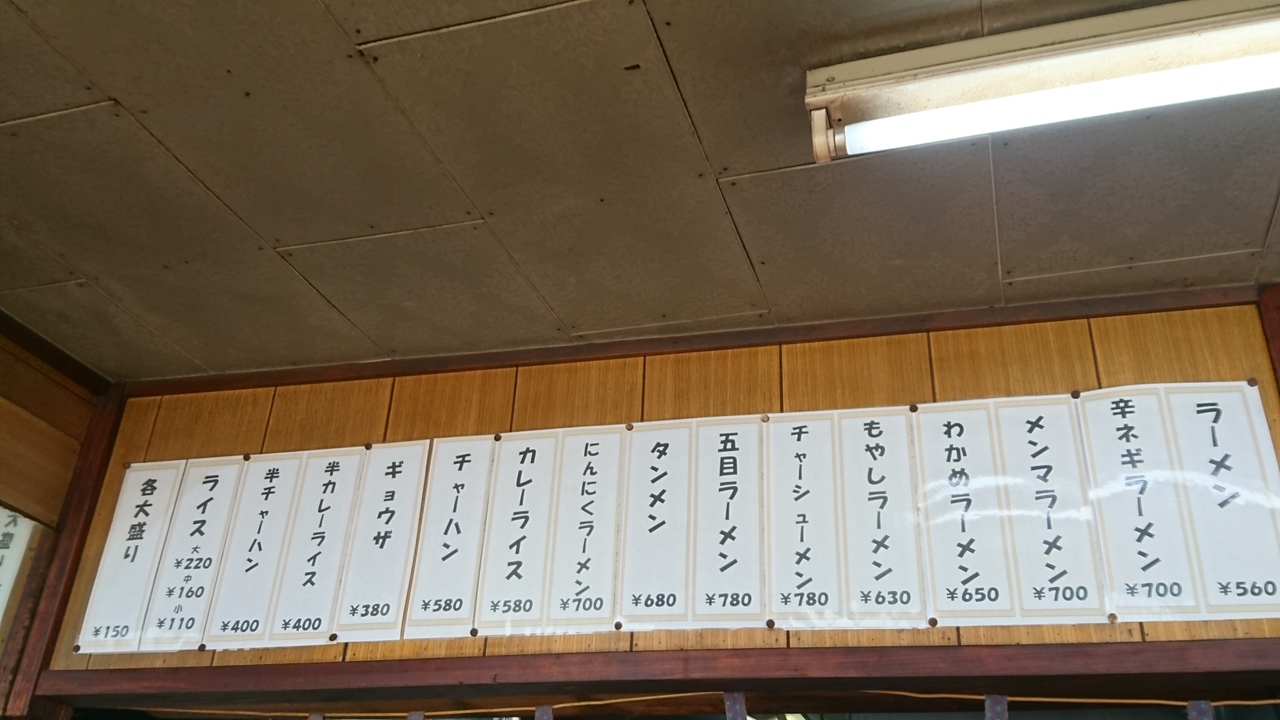 ラーメン
¥560
辛ネギラーメン
¥700
メンマラーメン
¥700
わかめラーメン
¥650
もやしラーメン
¥630
チャーシューメン
¥780
五目ラーメン
¥780
タンメン
¥680
にんにくラーメン
¥700
カレーライス
¥580
チャーハン
¥580
ギョウザ
¥380
半カレーライス
¥400
半チャーハン
¥400
ライス
大
¥220
中
¥160
小
¥110
各大盛り
¥150